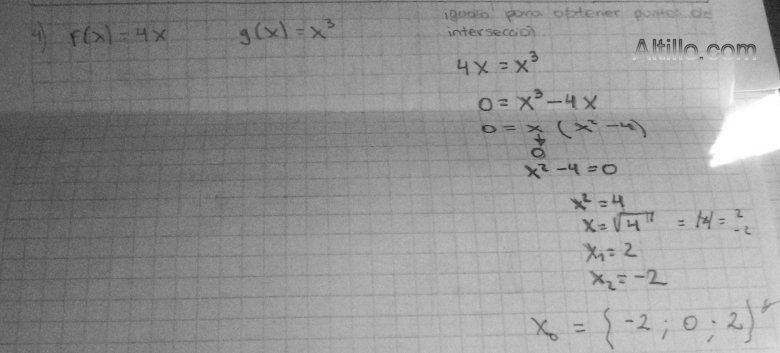 4) f(x) = 4x g(x) = x³
igualo para obtener puntos de
intersección
Altillo.com
4x = x³
0 = x³ - 4x
0 = x (x² - 4)
↓
0
x² - 4 = 0
x² = 4
x = √4 = |x| = 2
-2
x₁ = 2
x₂ = -2
x₀ = {-2 ; 0 ; 2}